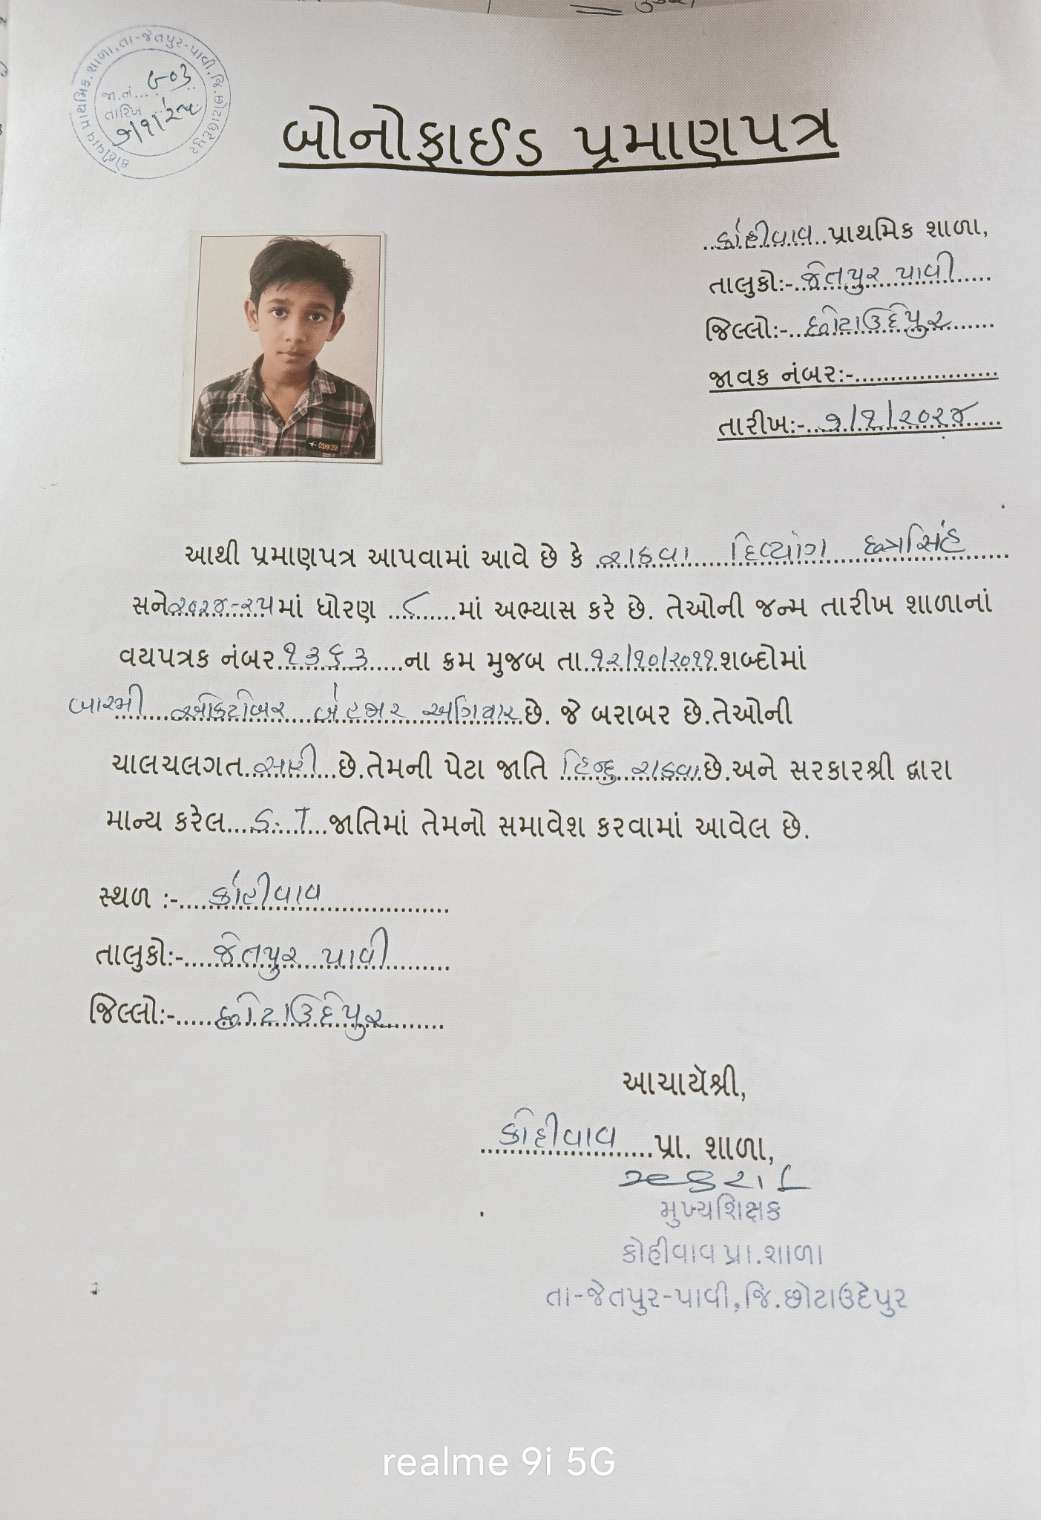 કોહીવાવ પ્રાથમિક શાળા, તા-જેતપુર-પાવી, જિ.છોટાઉદેપુર
જા.નં...
તારીખ
બોનોફાઈડ પ્રમાણપત્ર
કોહીવાવ પ્રાથમિક શાળા,
તાલુકો:- જેતપુર પાવી
જિલ્લો:- છોટાઉદેપુર
જાવક નંબર:-
તારીખ:-
આથી પ્રમાણપત્ર આપવામાં આવે છે કે રાઠવા દિવ્યાંગ છત્રસિંહ
સને ૨૦૨૪-૨૫ માં ધોરણ ૮ માં અભ્યાસ કરે છે. તેઓની જન્મ તારીખ શાળાનાં
વયપત્રક નંબર ૧૩૬૩ ના ક્રમ મુજબ તા.૧૨/૧૦/૨૦૧૧ શબ્દોમાં
બારમી ઓક્ટોબર બે હજાર અગિયાર છે. જે બરાબર છે.તેઓની
ચાલચલગત સારી છે.તેમની પેટા જાતિ હિન્દુ રાઠવા છે.અને સરકારશ્રી દ્વારા
માન્ય કરેલ S.T જાતિમાં તેમનો સમાવેશ કરવામાં આવેલ છે.
સ્થળ :- કોહીવાવ
તાલુકો:- જેતપુર પાવી
જિલ્લો:- છોટાઉદેપુર
આચાર્યશ્રી,
કોહીવાવ પ્રા. શાળા,
મુખ્યશિક્ષક
કોહીવાવ પ્રા.શાળા
તા-જેતપુર-પાવી,જિ.છોટાઉદેપુર
realme 9i 5G